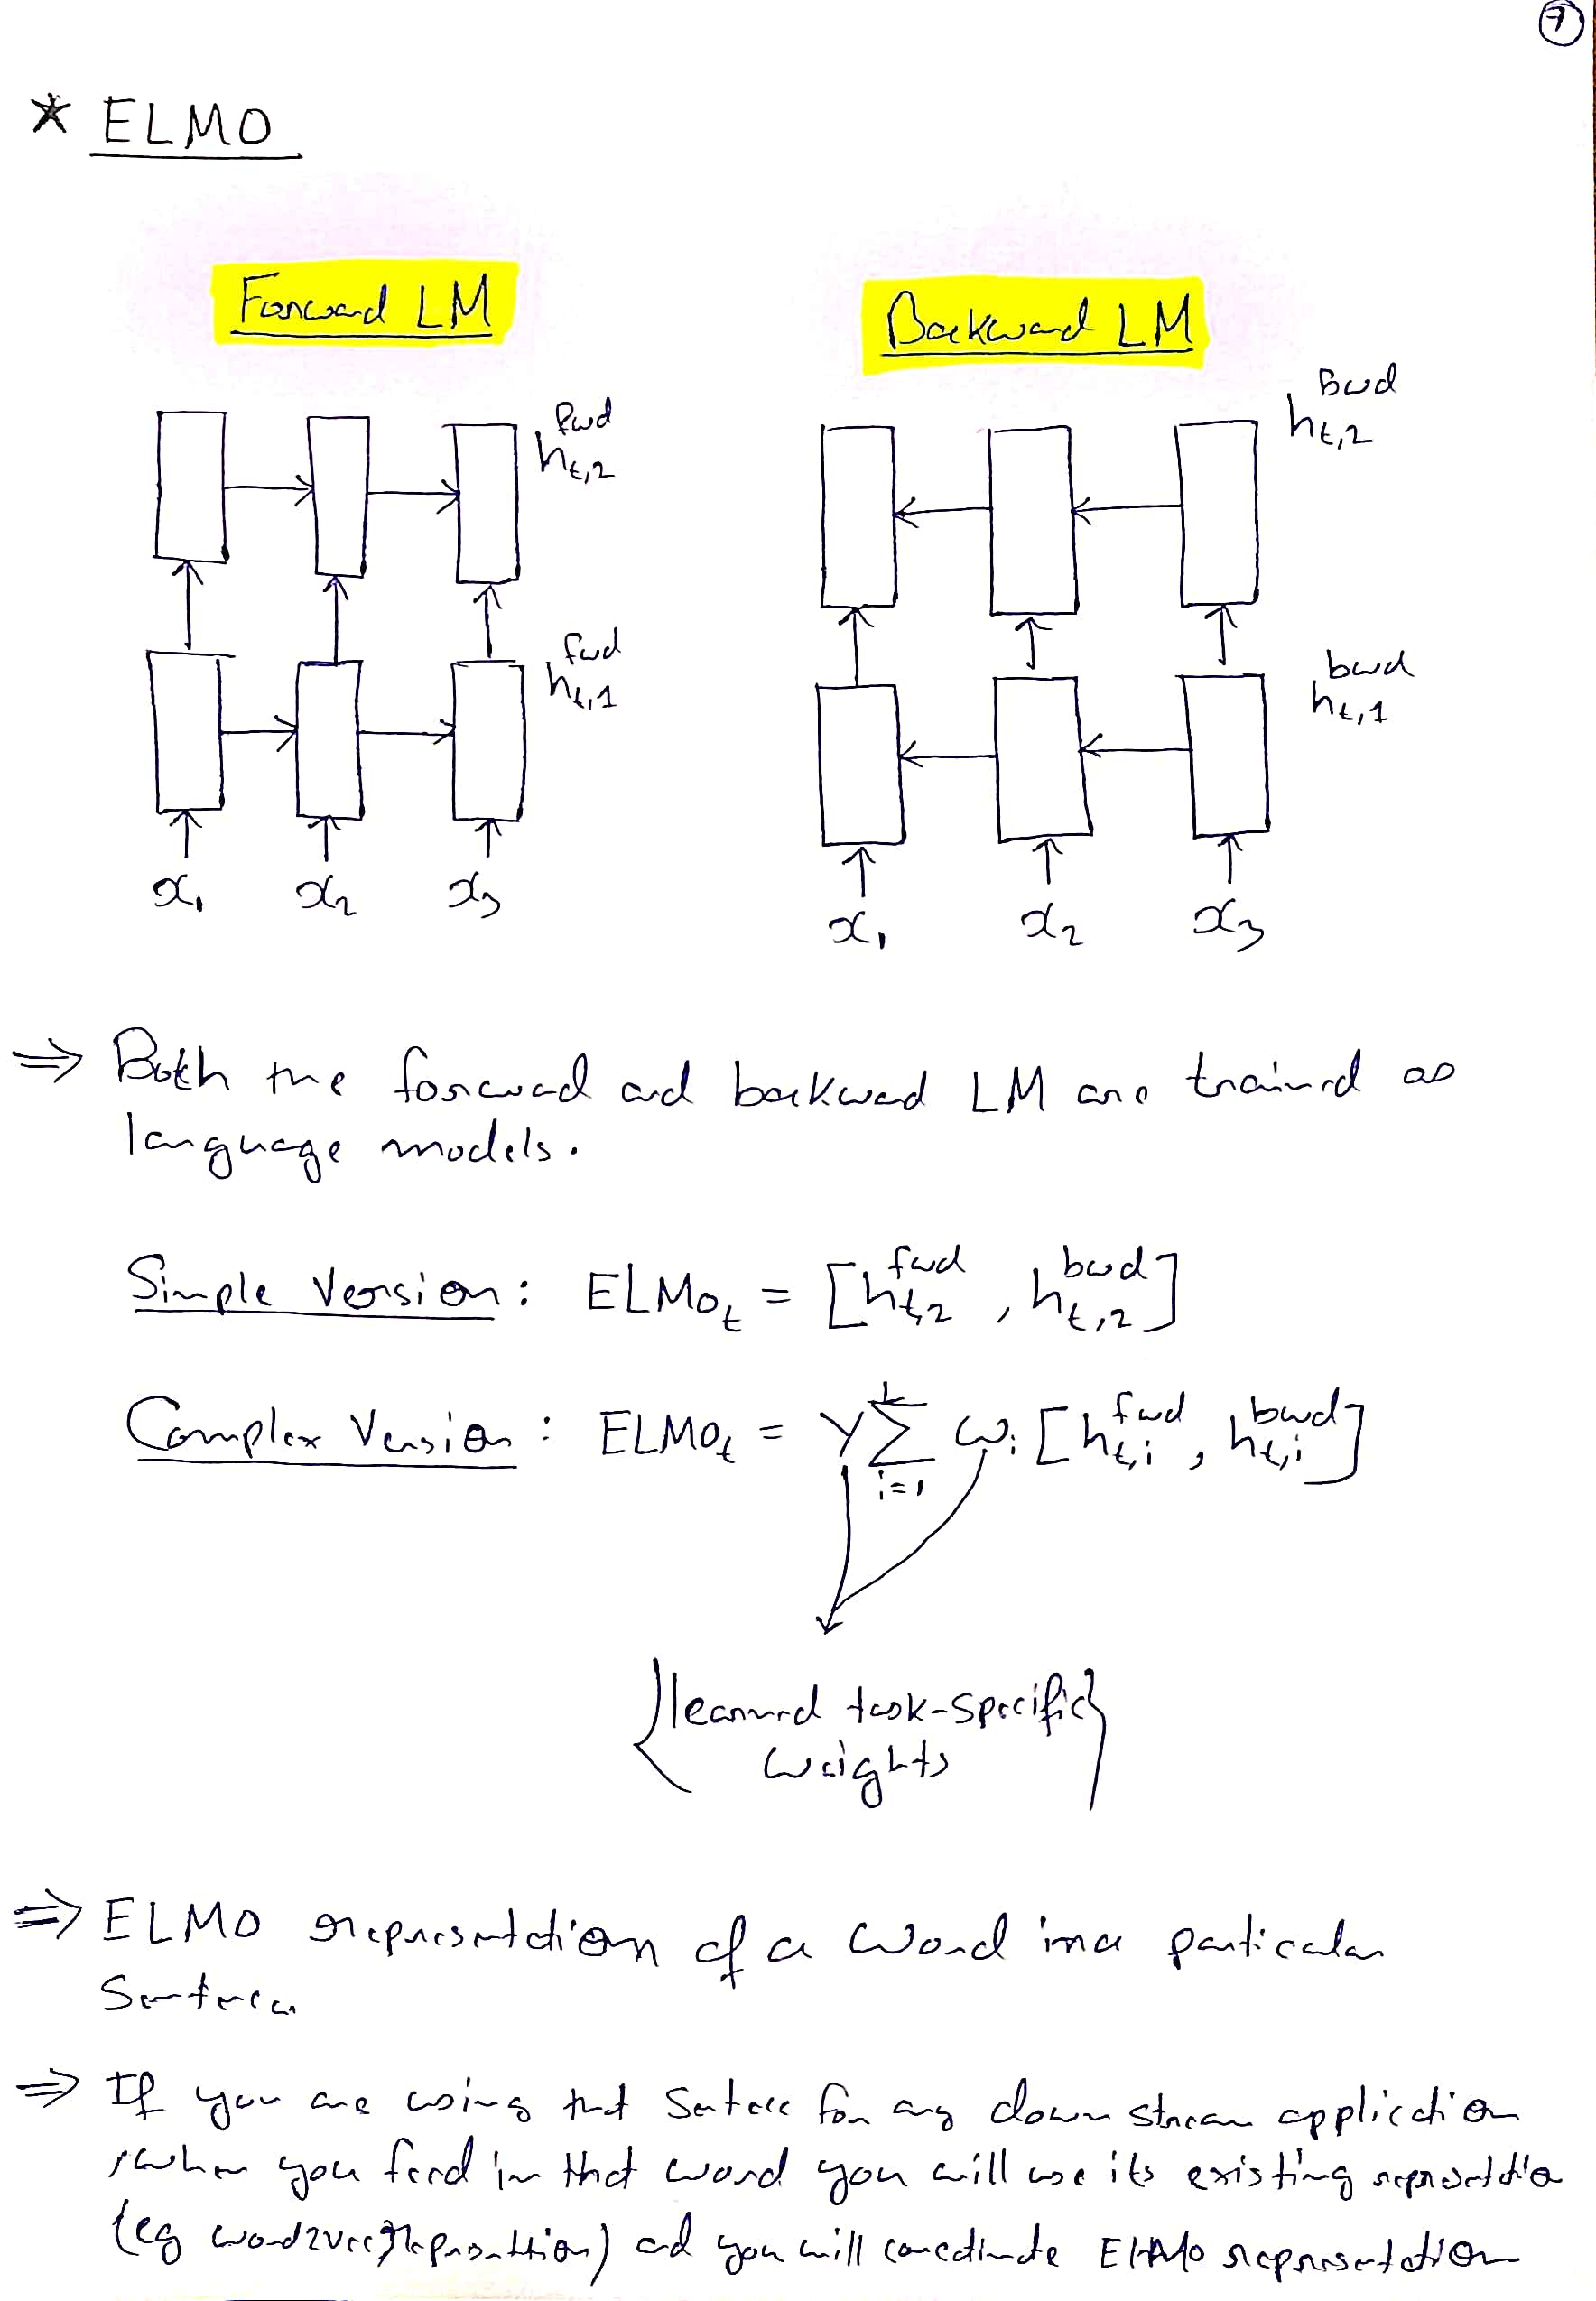 7
* ELMO
Forward LM
Backward LM
h_{t,2}^{fwd}
h_{t,2}^{Bwd}
h_{t,1}^{fwd}
h_{t,1}^{bwd}
x_1 x_2 x_3
x_1 x_2 x_3
⇒ Both the forward and backward LM are trained as
language models.
Simple Version: ELMO_t = [h_{t,2}^{fwd}, h_{t,2}^{bwd}]
Complex Version: ELMO_t = γ ∑_{i=1}^{L} ω_i [h_{t,i}^{fwd}, h_{t,i}^{bwd}]
{learned task-specific
weights}
⇒ ELMO representation of a word in a particular
Sentence
⇒ If you are using that Sentence for any down stream application
, when you feed in that word you will use its existing representation
(eg word2vec representation) and you will concatinate ELMO representation